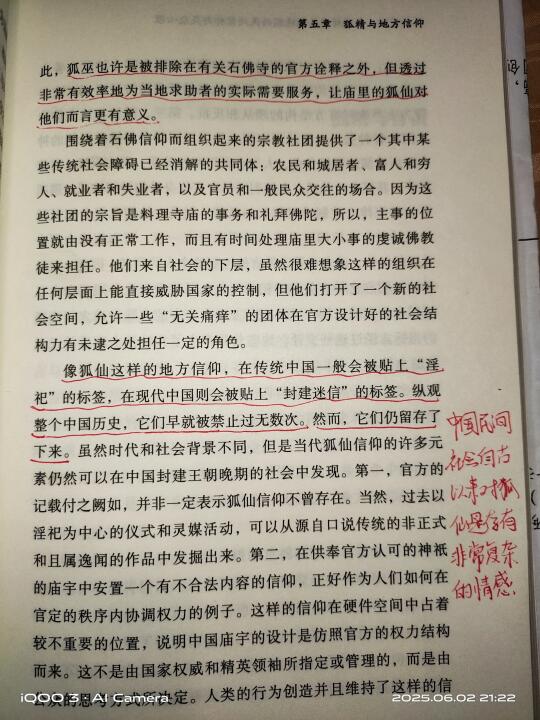 第五章 狐精与地方信仰
此，狐巫也许是被排除在有关石佛寺的官方诠释之外，但透过
非常有效率地为当地求助者的实际需要服务，让庙里的狐仙对
他们而言更有意义。
围绕着石佛信仰而组织起来的宗教社团提供了一个其中某
些传统社会障碍已经消解的共同体：农民和城居者、富人和穷
人、就业者和失业者，以及官员和一般民众交往的场合。因为这
些社团的宗旨是料理寺庙的事务和礼拜佛陀，所以，主事的位
置就由没有正常工作，而且有时间处理庙里大小事的虔诚佛教
徒来担任。他们来自社会的下层，虽然很难想象这样的组织在
任何层面上能直接威胁国家的控制，但他们打开了一个新的社
会空间，允许一些“无关痛痒”的团体在官方设计好的社会结
构力有未逮之处担任一定的角色。
像狐仙这样的地方信仰，在传统中国一般会被贴上“淫
祀”的标签，在现代中国则会被贴上“封建迷信”的标签。纵观
整个中国历史，它们早就被禁止过无数次。然而，它们仍留存了
下来。虽然时代和社会背景不同，但是当代狐仙信仰的许多元
素仍然可以在中国封建王朝晚期的社会中发现。第一，官方的
记载付之阙如，并非一定表示狐仙信仰不曾存在。当然，过去以
淫祀为中心的仪式和灵媒活动，可以从源自口说传统的非正式
和且属逸闻的作品中发掘出来。第二，在供奉官方认可的神祇
的庙宇中安置一个有不合法内容的信仰，正好作为人们如何在
官定的秩序内协调权力的例子。这样的信仰在硬件空间中占着
较不重要的位置，说明中国庙宇的设计是仿照官方的权力结构
而来。这不是由国家权威和精英领袖所指定或管理的，而是由
思考方式所决定。人类的行为创造并且维持了这样的信
中国民间
社会自古
以来对狐
仙是存有
非常复杂
的情感
iQOO 3 AI Camera
2025.06.02 21:22